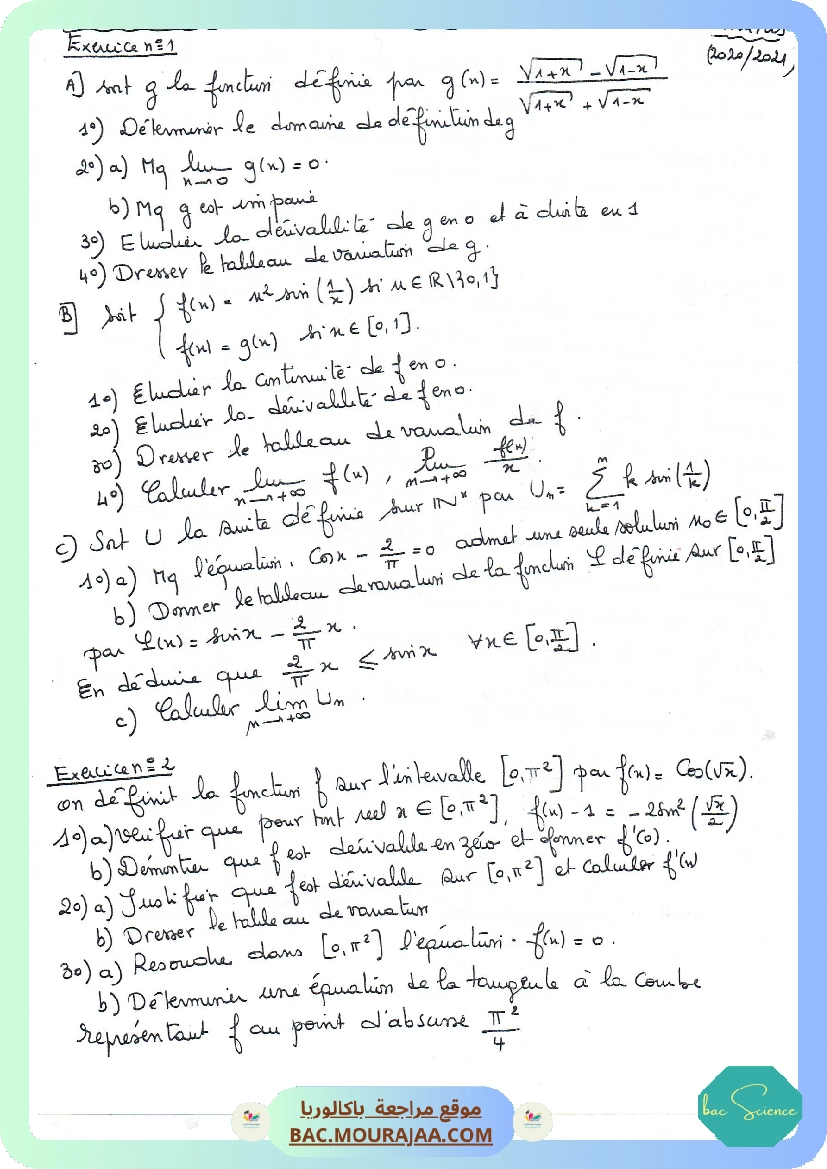 Exercice n=1
(2020/2021)
A] soit g la fonction définie par g(x) = (√1+x − √1−x) / (√1+x + √1−x)
1°) Déterminer le domaine de définition de g
2°) a) Mq lim x→0 g(x) = 0.
b) Mq g est impaire
3°) Etudier la dérivabilité de g en 0 et à droite en 1
4°) Dresser le tableau de variation de g.
B] Soit { f(x) = x² sin(1/x) si x ∈ ℝ\]0,1}
f(x) = g(x) si x ∈ [0,1].
1°) Etudier la continuité de f en 0.
2°) Etudier la dérivabilité de f en 0.
3°) Dresser le tableau de variation de f.
4°) Calculer lim x→+∞ f(x), lim x→+∞ f(x)/x.
C) Soit U la suite définie sur IN* par Un = Σ k=1 n k sin(1/k)
1°) a) Mq l'équation. Cosx − 2/π = 0 admet une seule solution x0 ∈ [0,π/2]
b) Donner le tableau de variation de la fonction φ définie sur [0,π/2]
par φ(x) = sinx − 2/π x.
En déduire que 2/π x ≤ sinx ∀x ∈ [0,π/2].
c) Calculer lim n→+∞ Un.
Exercice n=2
on définit la fonction f sur l'intervalle [0,π²] par f(x) = Cos(√x).
1°) a) Vérifier que pour tout réel x ∈ [0,π²], f(x) − 1 = −2sin²(√x/2)
b) Démontrer que f est dérivable en zéro et donner f'(0).
2°) a) Justifier que f est dérivable sur [0,π²] et calculer f'(x)
b) Dresser le tableau de variation
3°) a) Resoudre dans [0,π²] l'équation. f(x) = 0.
b) Déterminer une équation de la tangente à la courbe
représentant f au point d'abscisse π²/4
موقع مراجعة باكالوريا
BAC.MOURAJAA.COM
bac Science